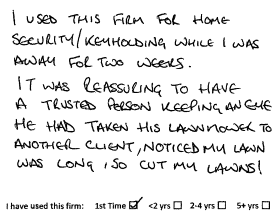 I USED THIS FIRM FOR HOME
SECURITY/KEYHOLDING WHILE I WAS
AWAY FOR TWO WEEKS.
IT WAS REASSURING TO HAVE
A TRUSTED PERSON KEEPING AN EYE
HE HAD TAKEN HIS LAWNMOWER TO
ANOTHER CLIENT, NOTICED MY LAWN
WAS LONG, SO CUT MY LAWNS!
I have used this firm: 1st Time ☑ <2 yrs ☐ 2-4 yrs ☐ 5+ yrs ☐